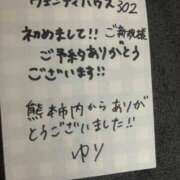 ヴェニティハウス302
初めまして!!ご新規様
ご予約ありがとう
ございます!!
熊本市内からありが
とうございました!!
ゆり